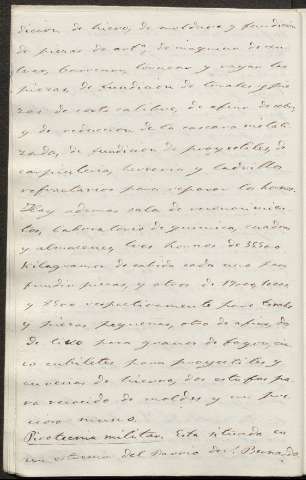 dicion de hierro, de moldería y fundicion
de piezas de art.ª, de maquina de cin
celar, barrenar, tornear y rayar las
piezas, de fundicion de bronces y pie
zas de corto calibre, de afino de cobre,
y de reduccion de la cascara metali
zada, de fundicion de proyectiles, de
carpinteria, herreria y ladrillos
refractarios para reparar los hornos.
Hay ademas sala de reconocimien
tos, laboratorio de quimica, cuadras
y almacenes, tres hornos de 35500
kilogramos de cabida cada uno para
fundir piezas, y otros de
y 2500 respectivamente para
y piezas pequeñas, otro de afino,
de para granos de fogon, cin
co cubilotes para proyectiles y
de hierro, dos estufas pa
ra recocido de moldes y un pre
cioso museo.
Pirotecnia militar. Está situada en
un estremo del barrio de S. Bernardo